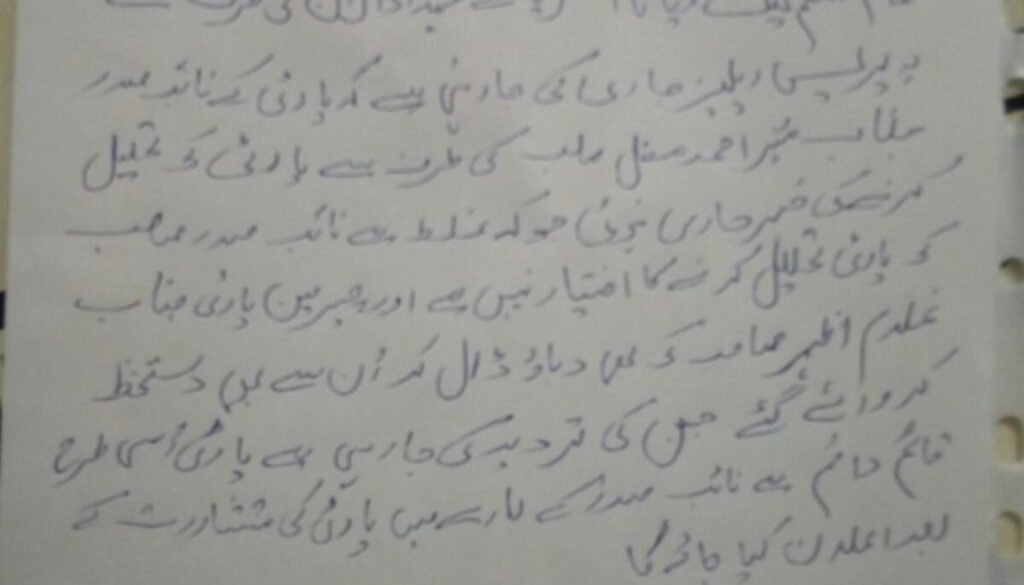 یہ پریس ریلیز جاری کی جا رہی ہے کہ پارٹی کے نائب صدر
جناب احمد مغل صاحب کی طرف سے پارٹی کو تحلیل
کرنے کی خبر جاری ہوئی جو کہ غلط ہے نائب صدر صاحب
کو پارٹی تحلیل کرنے کا اختیار نہیں ہے اور چیرمین پارٹی جناب
غلام اظہر صاحب کو بھی دباؤ ڈال کر اُن سے بھی دستخط
کروائے گئے جس کی تردید کی جا رہی ہے پارٹی اُسی طرح
قائم دائم ہے نائب صدر کے بارے میں پارٹی کی مشاورت کے
بعد اعلان کیا جائے گا